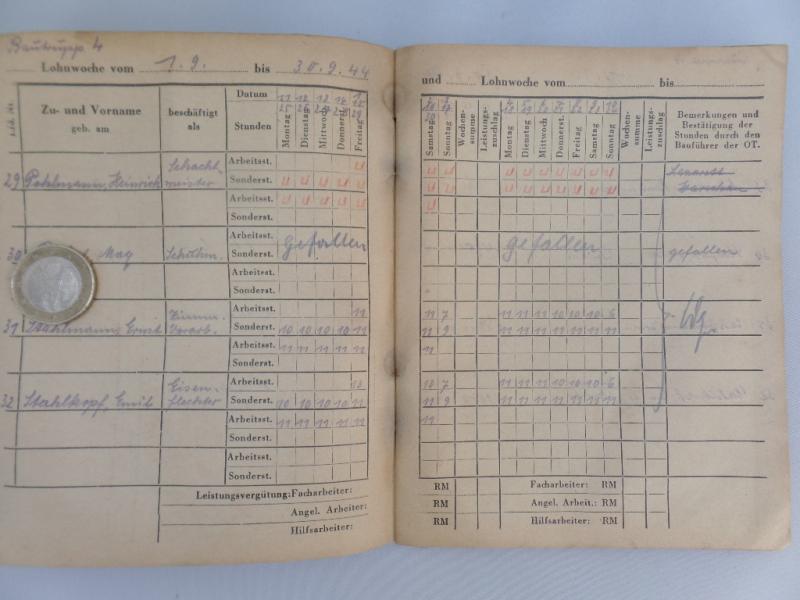 Bautrupp 4
Lohnwoche vom 1.9. bis 30.9.44
Lfd. Nr.
Zu- und Vorname
geb. am
beschäftigt
als
Datum
Stunden
Montag
Dienstag
Mittwoch
Donnerst.
Freitag
29 Pohlmann, Heinrich
Schacht-
meister
Arbeitsst. u
Sonderst. u u u u u
Arbeitsst. u u u u u
Sonderst.
30 Max
Arbeitsst.
Sonderst. gefallen
Arbeitsst.
Sonderst.
31 Ernst
Zimm.
Vorarb.
Arbeitsst. 11
Sonderst. 10 10 10 10 11
Arbeitsst. 11 11 11 11 11
Sonderst.
32 Stahlkopf, Emil
Eisen-
flechter
Arbeitsst. 10
Sonderst. 10 10 10 10 11
Arbeitsst. 11 11 11 11 11
Sonderst.
Arbeitsst.
Sonderst.
Leistungsvergütung: Facharbeiter:
Angel. Arbeiter:
Hilfsarbeiter:
und Lohnwoche vom bis
Samstag
Sonntag
Wochen-
summe
Leistungs-
zuschlag
Montag
Dienstag
Mittwoch
Donnerst.
Freitag
Samstag
Sonntag
Wochen-
summe
Leistungs-
zuschlag
Bemerkungen und
Bestätigung der
Stunden durch den
Bauführer der OT.
u u u u u u u u u
u u u u u u u u u
u
gefallen gefallen
11 7 11 11 11 10 10 10 6
11 9 11 11 11 11 11 11 11
11
10 7 11 11 11 10 10 10 6
11 9 11 11 11 11 11 11 11
11
RM Facharbeiter: RM
RM Angel. Arbeit.: RM
RM Hilfsarbeiter: RM